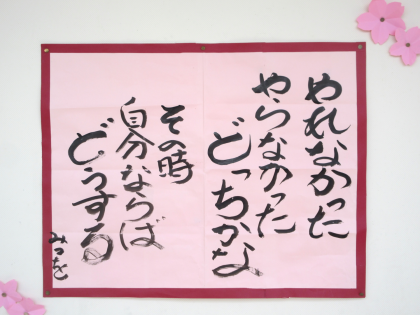 やれなかった
やらなかった
どっちかな
その時
自分ならば
どうする
みつを